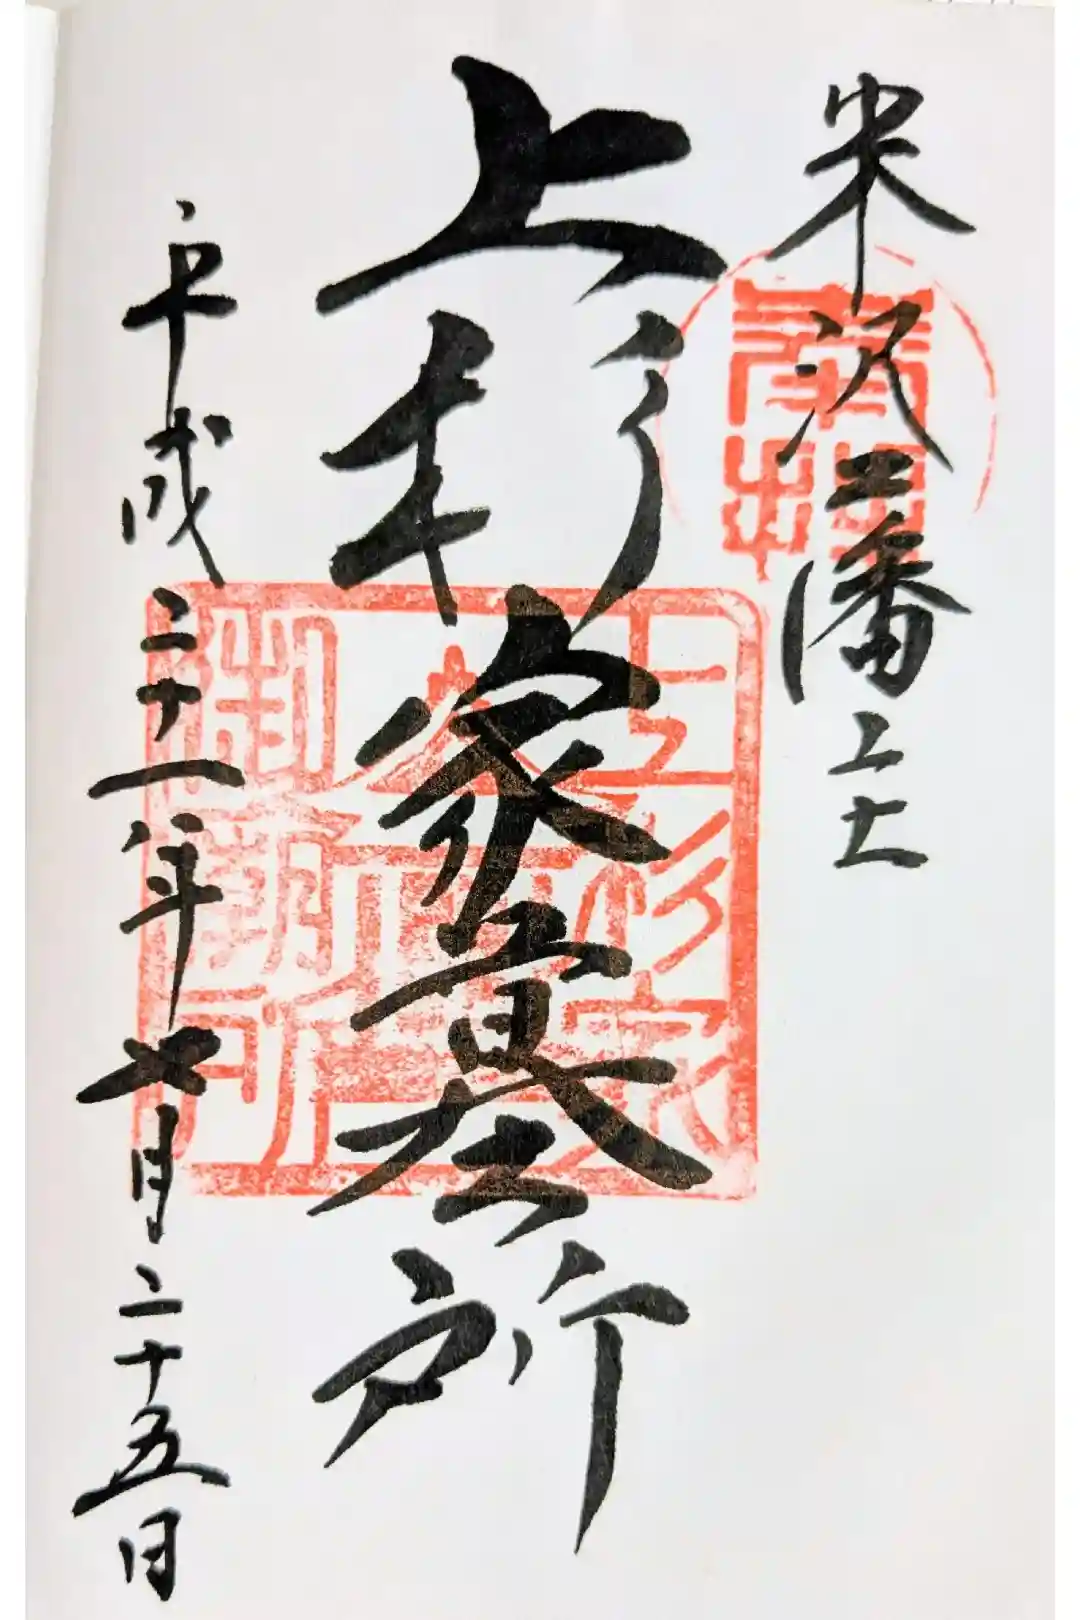 米沢藩主
上杉家墓所
平成二十一年七月二十五日
上杉家
御廟所